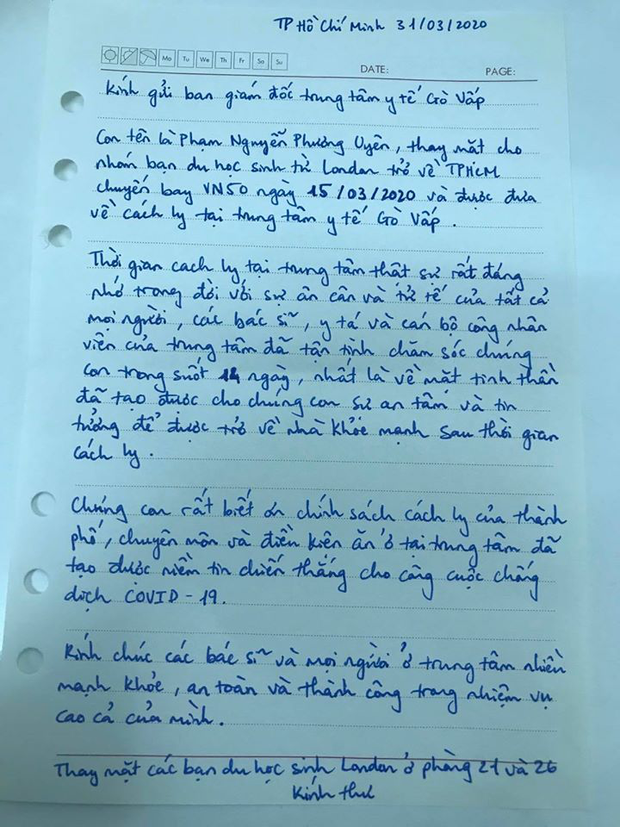 TP Hồ Chí Minh 31/03/2020
Mo Tu We Th Fr Sa Su
DATE: PAGE:
Kính gửi ban giám đốc trung tâm y tế Gò Vấp
Con tên là Phạm Nguyễn Phương Uyên, thay mặt cho
nhóm bạn du học sinh từ London trở về TPHCM
chuyến bay VN50 ngày 15/03/2020 và được đưa
về cách ly tại trung tâm y tế Gò Vấp.
Thời gian cach ly tại trung tâm thật sự rất đáng
nhớ trong đời với sự ân cần và tử tế của tất cả
mọi người, các bác sĩ, y tá và cán bộ công nhân
viên của trung tâm đã tận tình chăm sóc chúng
con trong suốt 14 ngày, nhất là về mặt tinh thần
đã tạo được cho chúng con sự an tâm và tin
tưởng để được trở về nhà khỏe mạnh sau thời gian
cách ly.
Chúng con rất biết ơn chính sách cách ly của thành
phố, chuyên môn và điều kiện ăn ở tại trung tâm đã
tạo được niềm tin chiến thắng cho công cuộc chống
dịch COVID-19.
Kính chúc các bác sĩ và mọi người ở trung tâm nhiều
mạnh khỏe, an toàn và thành công trong nhiệm vụ
cao cả của mình.
Thay mặt các bạn du học sinh London ở phòng 21 và 26
Kính thư